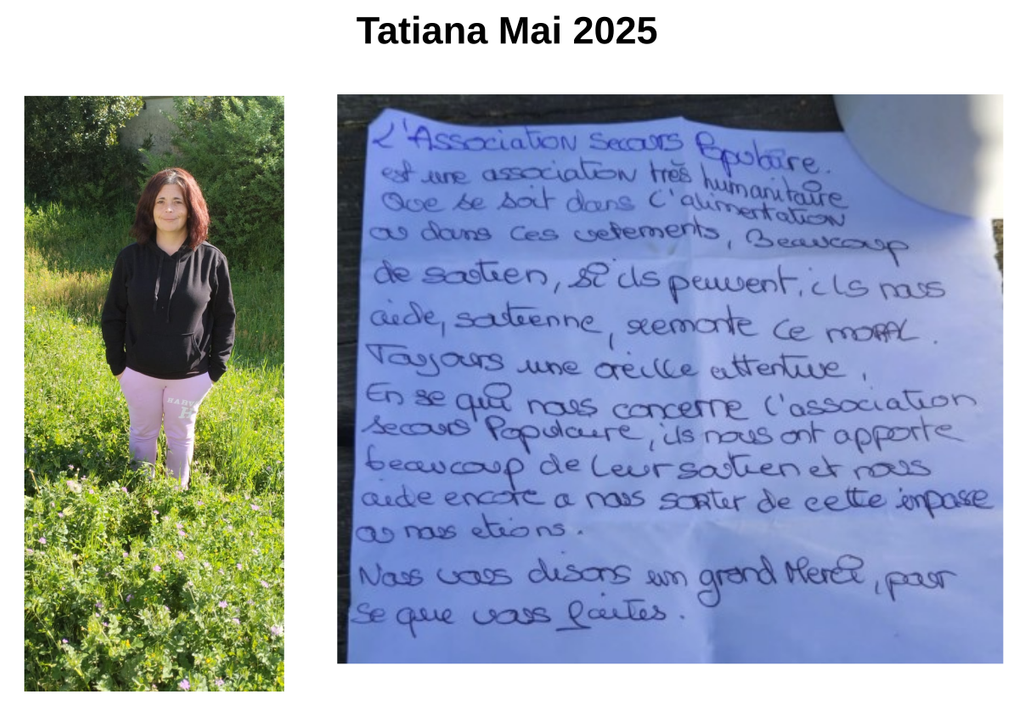 Tatiana Mai 2025
L'Association secours Populaire.
est une association très humanitaire
Que se soit dans l'alimentation
ou dans les vetements, Beaucoup
de soutien, si ils peuvent, ils nous
aide, soutienne, remonte le moral.
Toujours une oreille attentive,
En se qui nous concerne l'association
secours Populaire, ils nous ont apporte
beaucoup de leur soutien et nous
aide encore a nous sortir de cette impasse
ou nous etions.
Nous vous disons un grand Merci, pour
se que vous faites.